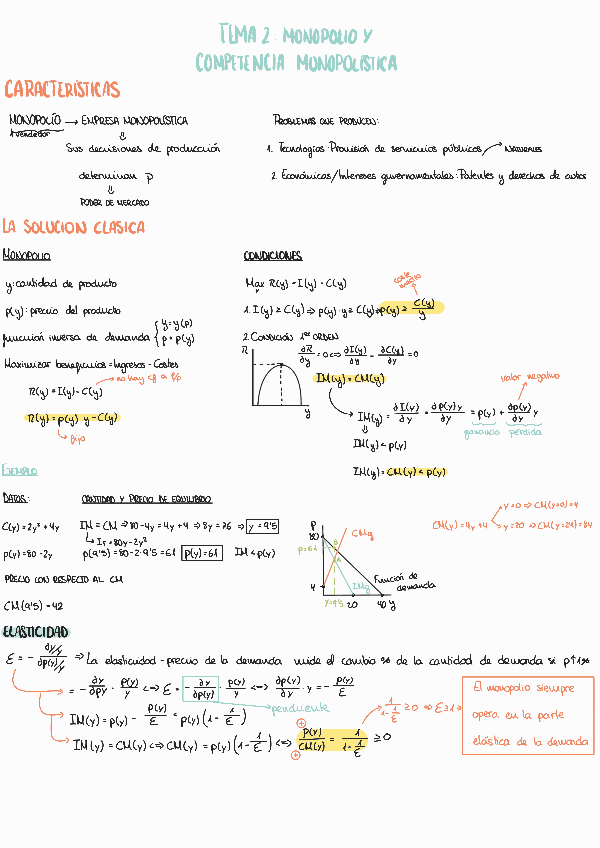 TEMA 2: MONOPOLIO Y
COMPETENCIA MONOPOLÍSTICA
CARACTERÍSTICAS
MONOPOLIO → EMPRESA MONOPOLÍSTICA
1 vendedor
⇓
Sus decisiones de producción
determinan p
⇓
PODER DE MERCADO
PROBLEMAS QUE PRODUCEN:
1. Tecnologías: Provisión de servicios públicos → NATURALES
2. Económicas/Intereses guvernamentales: Patentes y derechos de autor
LA SOLUCION CLASICA
MONOPOLIO
y: cantidad de producto
p(y): precio del producto
función inversa de demanda { y = y(p)
p = p(y)
Maximizar beneficios = Ingresos - Costes
R(y) = I(y) - C(y)
R(y) = p(y) · y - C(y)
fijo
CONDICIONES
Max R(y) = I(y) - C(y)
y
coste medio
1. I(y) ≥ C(y) ⇒ p(y) · y ≥ C(y) ⇒ p(y) ≥ C(y)/y
2. Condición 1er ORDEN
R
y
∂R/∂y = 0 <=> ∂I(y)/∂y - ∂C(y)/∂y = 0
IM(y) = CM(y)
valor negativo
IM(y) = ∂I(y)/∂y = ∂p(y)y/∂y = p(y) + ∂p(y)/∂y y
ganancia pérdida
⇓
IM(y) < p(y)
IM(y) = CM(y) < p(y)
EJEMPLO
DATOS:
C(y) = 2y² + 4y
p(y) = 80 - 2y
PRECIO CON RESPECTO AL CM
CM(9'5) = 42
CANTIDAD Y PRECIO DE EQUILIBRIO
IM = CM ⇒ 80 - 4y = 4y + 4 ⇒ 8y = 76 ⇒ y = 9'5
IT = 80y - 2y²
p(9'5) = 80 - 2 · 9'5 = 61 p(y) = 61 IM < p(y)
P
80
P=61
B
A
CMg
IMg
Función de
demanda
4
y=9'5
20
40 y
CM(y) = 4y + 4
y = 0 ⇒ CM(y=0) = 4
y = 20 ⇒ CM(y=20) = 84
ELASTICIDAD
ε = - ∂y/y / ∂p(y)/y ⇒ La elasticidad-precio de la demanda mide el cambio % de la cantidad de demanda si p↑1%
= - ∂y/∂py · p(y)/y <=> ε = - ∂y/∂p(y) · p(y)/y <=> ∂p(y)/∂y · y = - p(y)/ε
pendiente
IM(y) = p(y) - p(y)/ε = p(y) (1 - 1/ε)
IM(y) = CM(y) <=> CM(y) = p(y) (1 - 1/ε) <=> p(y)/CM(y) = 1/(1 - 1/ε) ≥ 0
1/(1 - 1/ε) ≥ 0 ⇒ ε ≥ 1 ⇒
El monopolio siempre
opera en la parte
elástica de la demanda